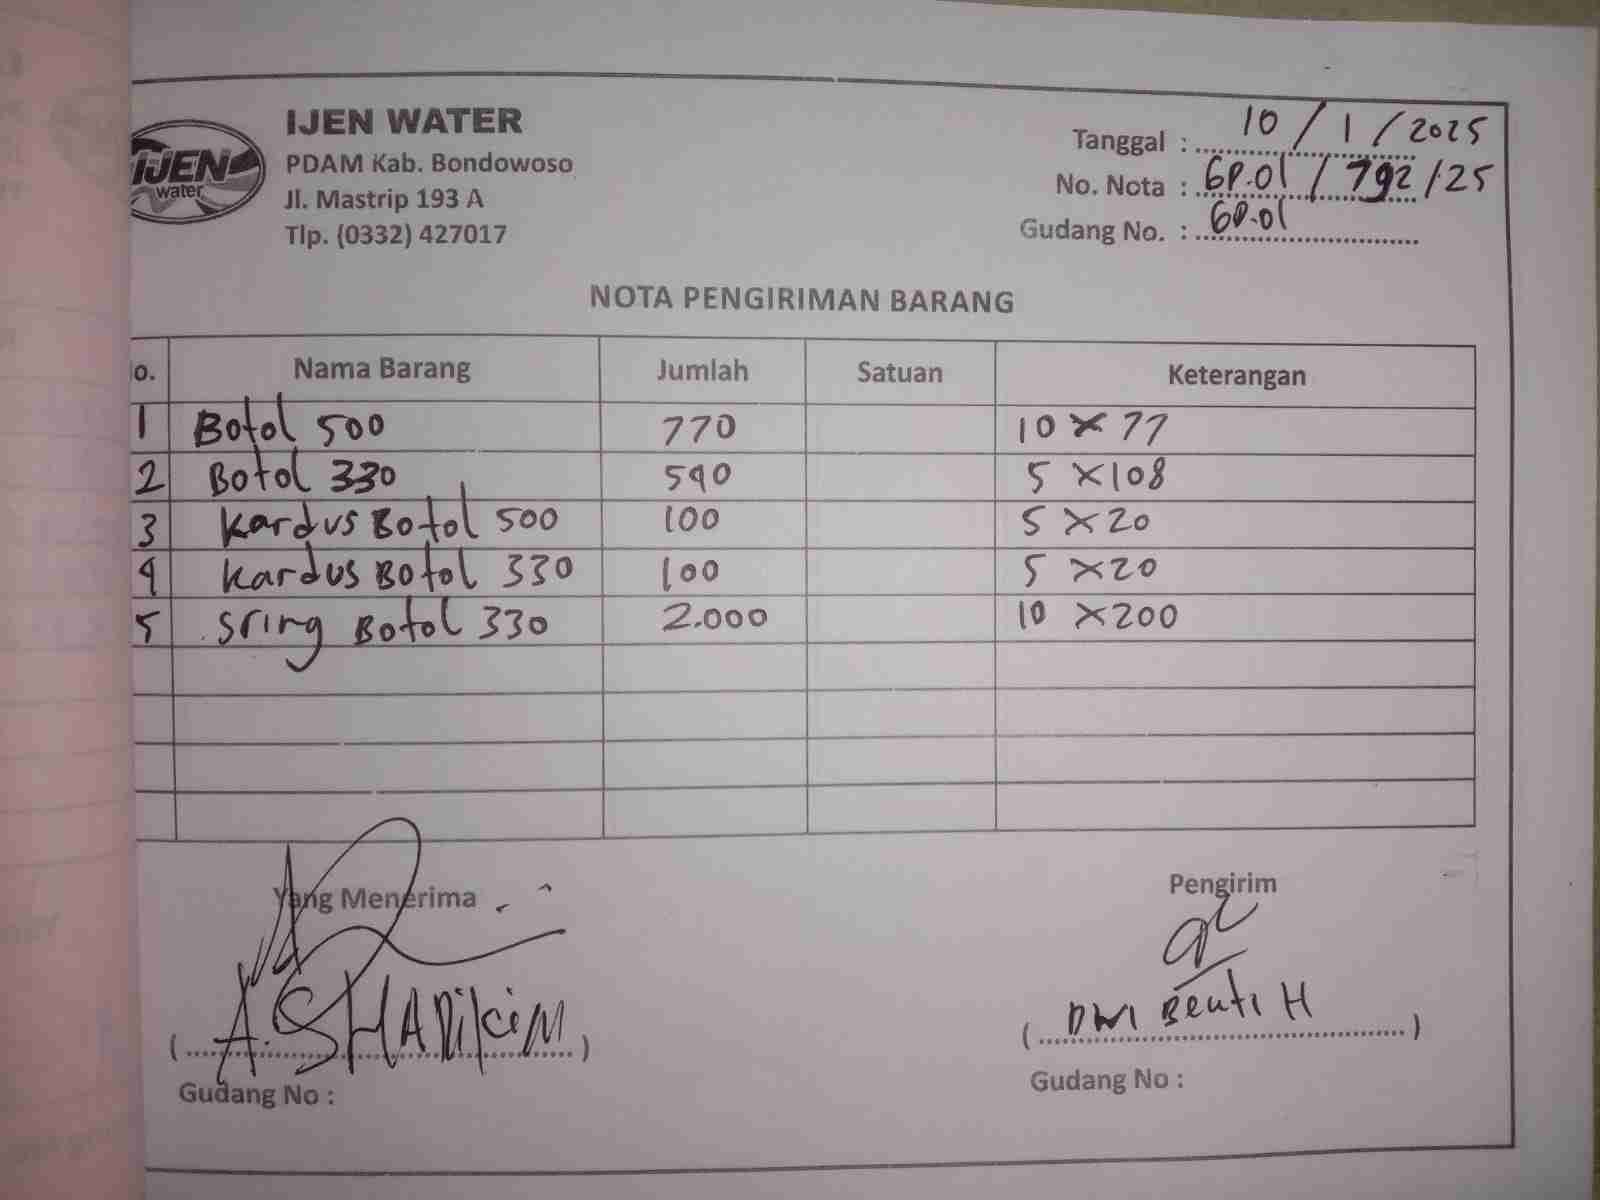 IJEN
water
IJEN WATER
PDAM Kab. Bondowoso
Jl. Mastrip 193 A
Tlp. (0332) 427017
Tanggal : 10 / 1 / 2025
No. Nota : GP.01 / 792 / 25
Gudang No. : GP.01
NOTA PENGIRIMAN BARANG
o. Nama Barang Jumlah Satuan Keterangan
1 Botol 500 770 10 x 77
2 Botol 330 540 5 x 108
3 Kardus Botol 500 100 5 x 20
4 Kardus Botol 330 100 5 x 20
5 Sring Botol 330 2.000 10 x 200
Yang Menerima Pengirim
( A. SHADIKIN ) ( DWI H )
Gudang No : Gudang No :